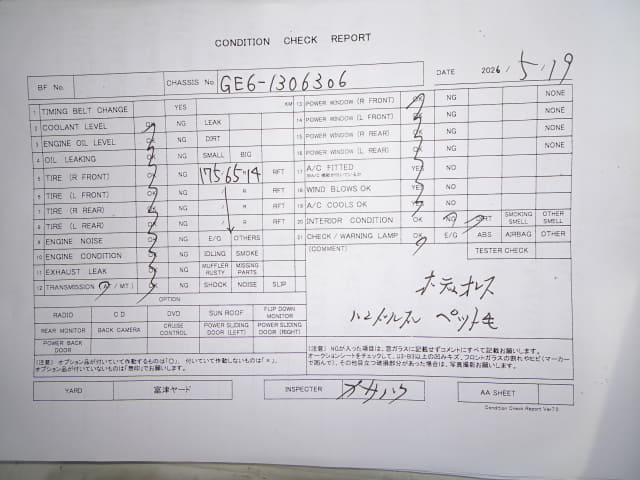 CONDITION CHECK REPORT
BF No.
CHASSIS No GE6-1306306
DATE 2026 / 5.19
1 TIMING BELT CHANGE YES KM
2 COOLANT LEVEL OK NG LEAK
3 ENGINE OIL LEVEL OK NG DIRT
4 OIL LEAKING OK NG SMALL BIG
5 TIRE (R FRONT) OK NG 175.65.14 RFT
6 TIRE (L FRONT) OK NG / R RFT
7 TIRE (R REAR) OK NG / R RFT
8 TIRE (L REAR) OK NG / R RFT
9 ENGINE NOISE OK NG E/G OTHERS
10 ENGINE CONDITION OK NG IDLING SMOKE
11 EXHAUST LEAK OK NG MUFFLER RUSTY MISSING PARTS
12 TRANSMISSION (A / MT) OK NG SHOCK NOISE SLIP
13 POWER WINDOW (R FRONT) OK NG NONE
14 POWER WINDOW (L FRONT) OK NG NONE
15 POWER WINDOW (R REAR) OK NG NONE
16 POWER WINDOW (L REAR) OK NG NONE
17 A/C FITTED YES NO
18 WIND BLOWS OK YES NO
19 A/C COOLS OK YES NO
20 INTERIOR CONDITION OK NG DIRT SMOKING SMELL OTHER SMELL
21 CHECK / WARNING LAMP OK E/G ABS AIRBAG OTHER
(COMMENT)
TESTER CHECK
OPTION
RADIO CD DVD SUN ROOF FLIP DOWN MONITOR
REAR MONITOR BACK CAMERA CRUISE CONTROL POWER SLIDING DOOR (LEFT) POWER SLIDING DOOR (RIGHT)
POWER BACK DOOR
(注意) オプション品が付いていて作動するものは「○」、付いていて作動しないものは「×」、
オプション品が付いていないものは「無印」でお願いします。
(注意)NGが入った項目は、窓ガラスに記載せずコメントにすべて記載お願いします。
オークションシートをチェックして、U3・B3以上の凹みキズ、フロントガラスの割れやヒビ(マーカー
で囲んで)、その他目立つ破損部分があった場合は、写真撮影お願いします。
YARD 富津ヤード
INSPECTER オサハワ
AA SHEET
Condition Check Report Ver7.0